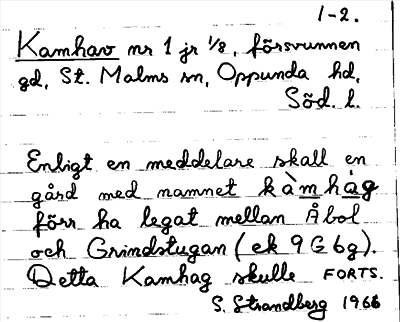 1-2.
Kamhav nr 1 jr 1/8, försvunnen
gd, St. Malms sn, Oppunda hd,
Söd. l.
Enligt en meddelare skall en
gård med namnet kàmhág
förr ha legat mellan Åbol
och Grindstugan (ek 9G 6g).
Detta Kamhag skulle FORTS.
S. Strandberg 1966